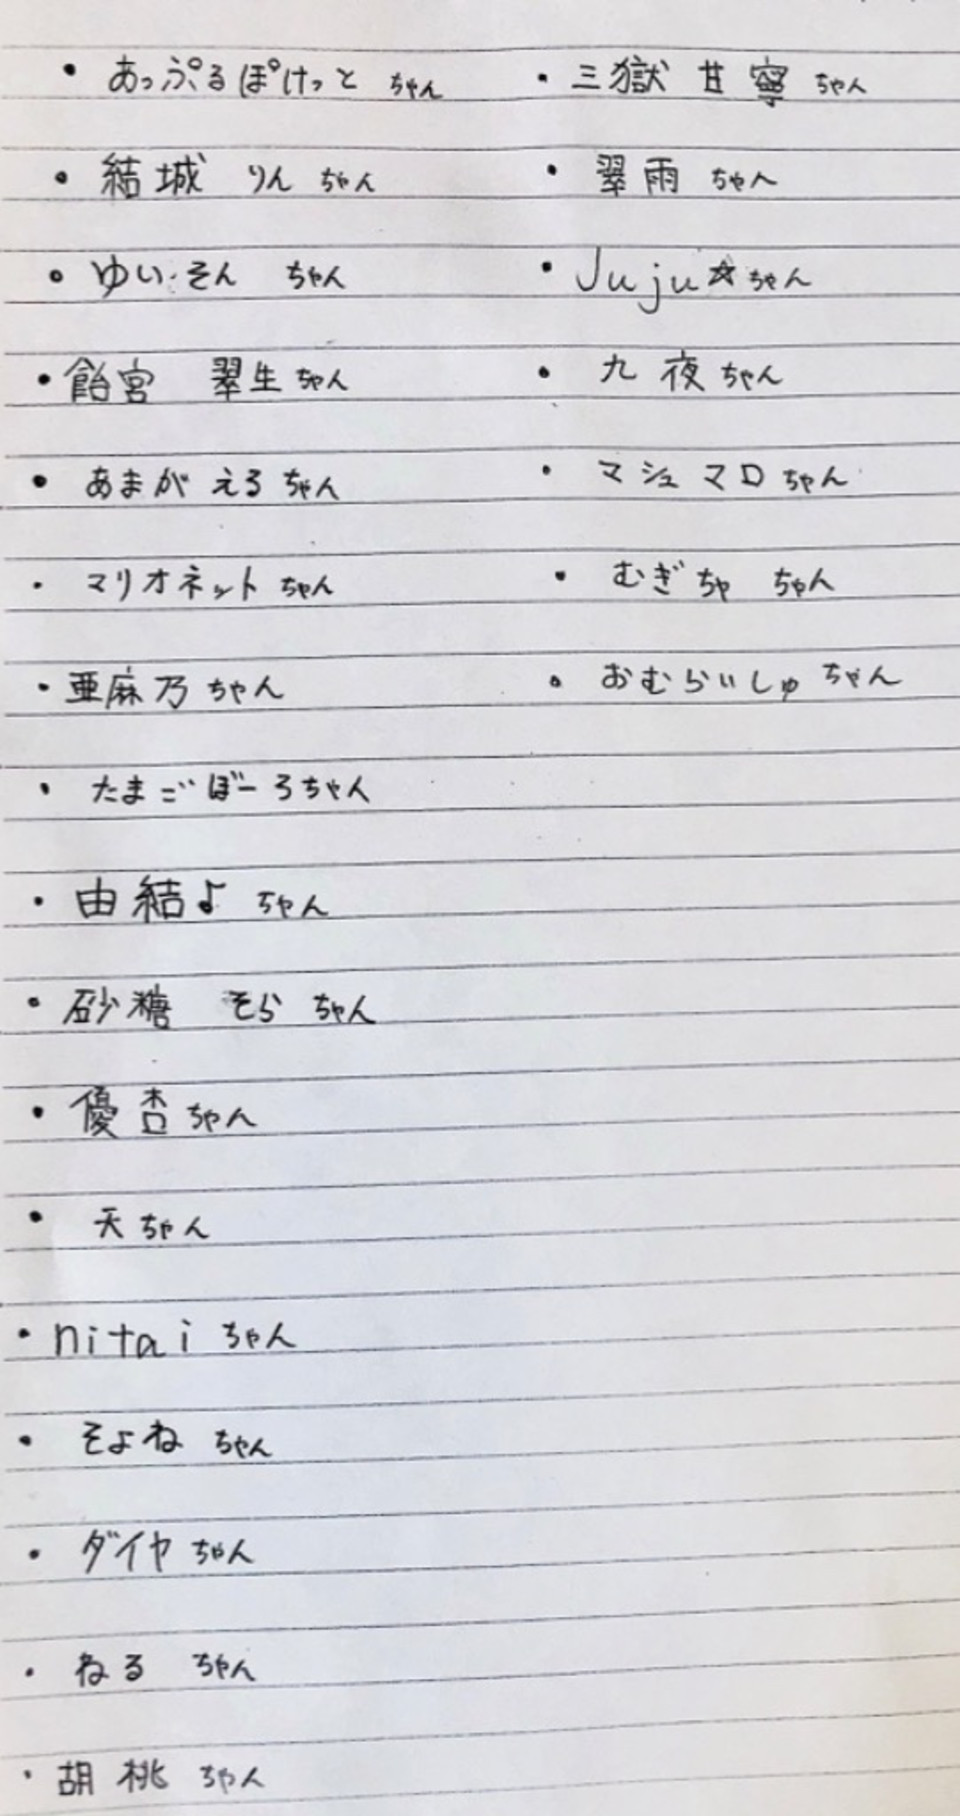 ・あっぷるぽけっと ちゃん
・結城 りん ちゃん
・ゆい・そん ちゃん
・飴宮 翠生 ちゃん
・あまがえる ちゃん
・マリオネット ちゃん
・亜麻乃 ちゃん
・たまごぼーろちゃん
・由結♪ ちゃん
・砂糖 そら ちゃん
・優杏 ちゃん
・天ちゃん
・nitai ちゃん
・そよね ちゃん
・ダイヤ ちゃん
・ねる ちゃん
・胡桃 ちゃん
・三獄 甘寧 ちゃん
・翠雨 ちゃん
・Juju☆ちゃん
・九夜 ちゃん
・マシュマロ ちゃん
・むぎちゃ ちゃん
・おむらいしゅ ちゃん